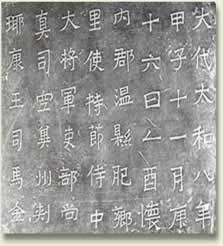 大代太和八年
甲子十一月庚
十六日乙酉懷
內郡溫縣肥鄉
里使持節侍中
大將軍吏部尚
真司空冀州刺
瑘康王司馬金